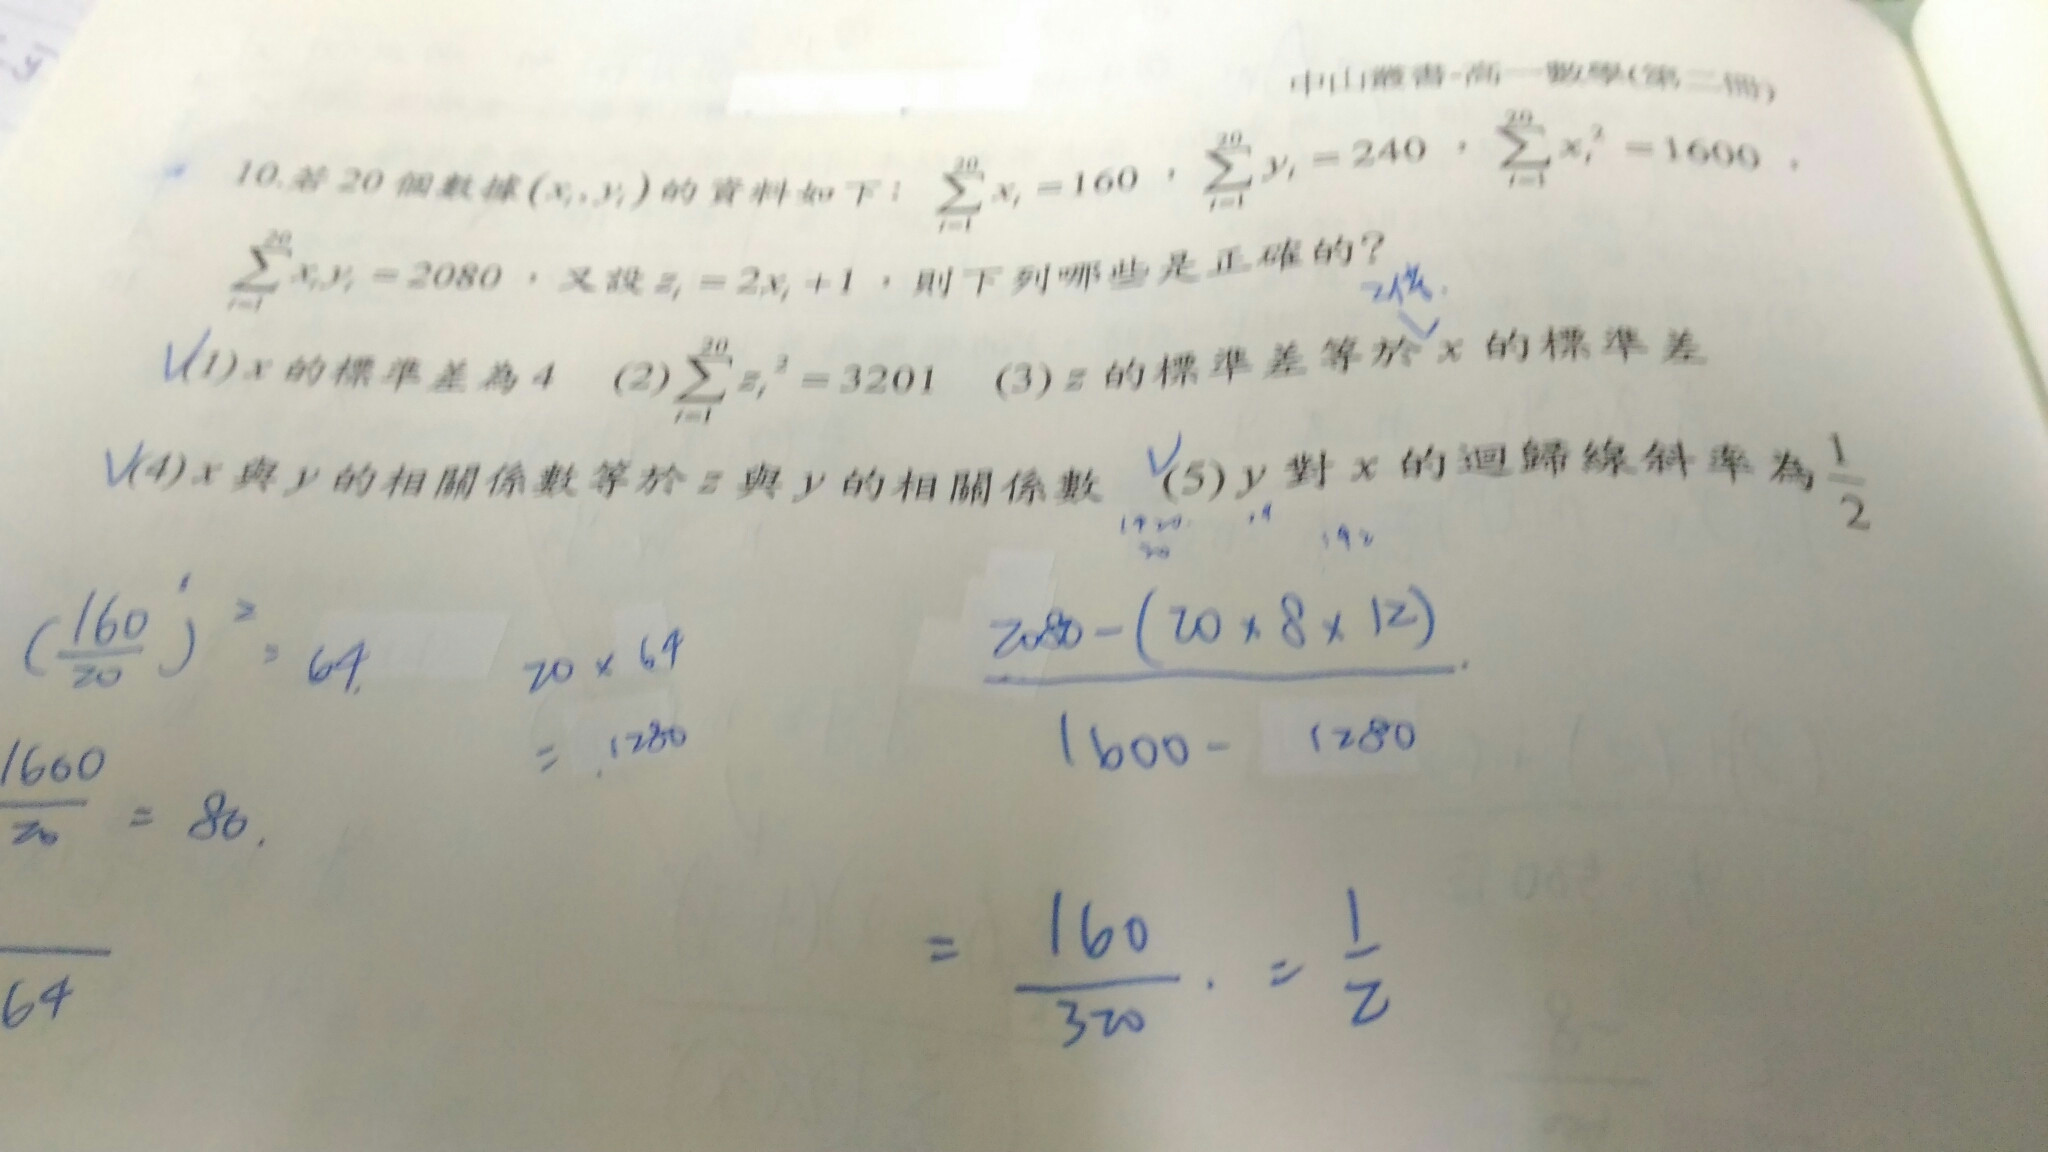 中山叢書-高一數學(第二冊)
10.若20個數據(x_i, y_i)的資料如下：∑_{i=1}^{20} x_i = 160，∑_{i=1}^{20} y_i = 240，∑_{i=1}^{20} x_i² = 1600，
∑_{i=1}^{20} x_i y_i = 2080，又設 z_i = 2x_i + 1，則下列哪些是正確的？
2倍.
✓(1) x 的標準差為 4 (2) ∑_{i=1}^{20} z_i² = 3201 (3) z 的標準差等於 x 的標準差
✓(4) x 與 y 的相關係數等於 z 與 y 的相關係數 ✓(5) y 對 x 的迴歸線斜率為 1/2
1920. 192
20
(160/20)² = 64. 20 × 64 (2080 - (20 × 8 × 12)) / (1600 - 1280)
= 1280
1600/20 = 80.
= 160/320 . = 1/2
64